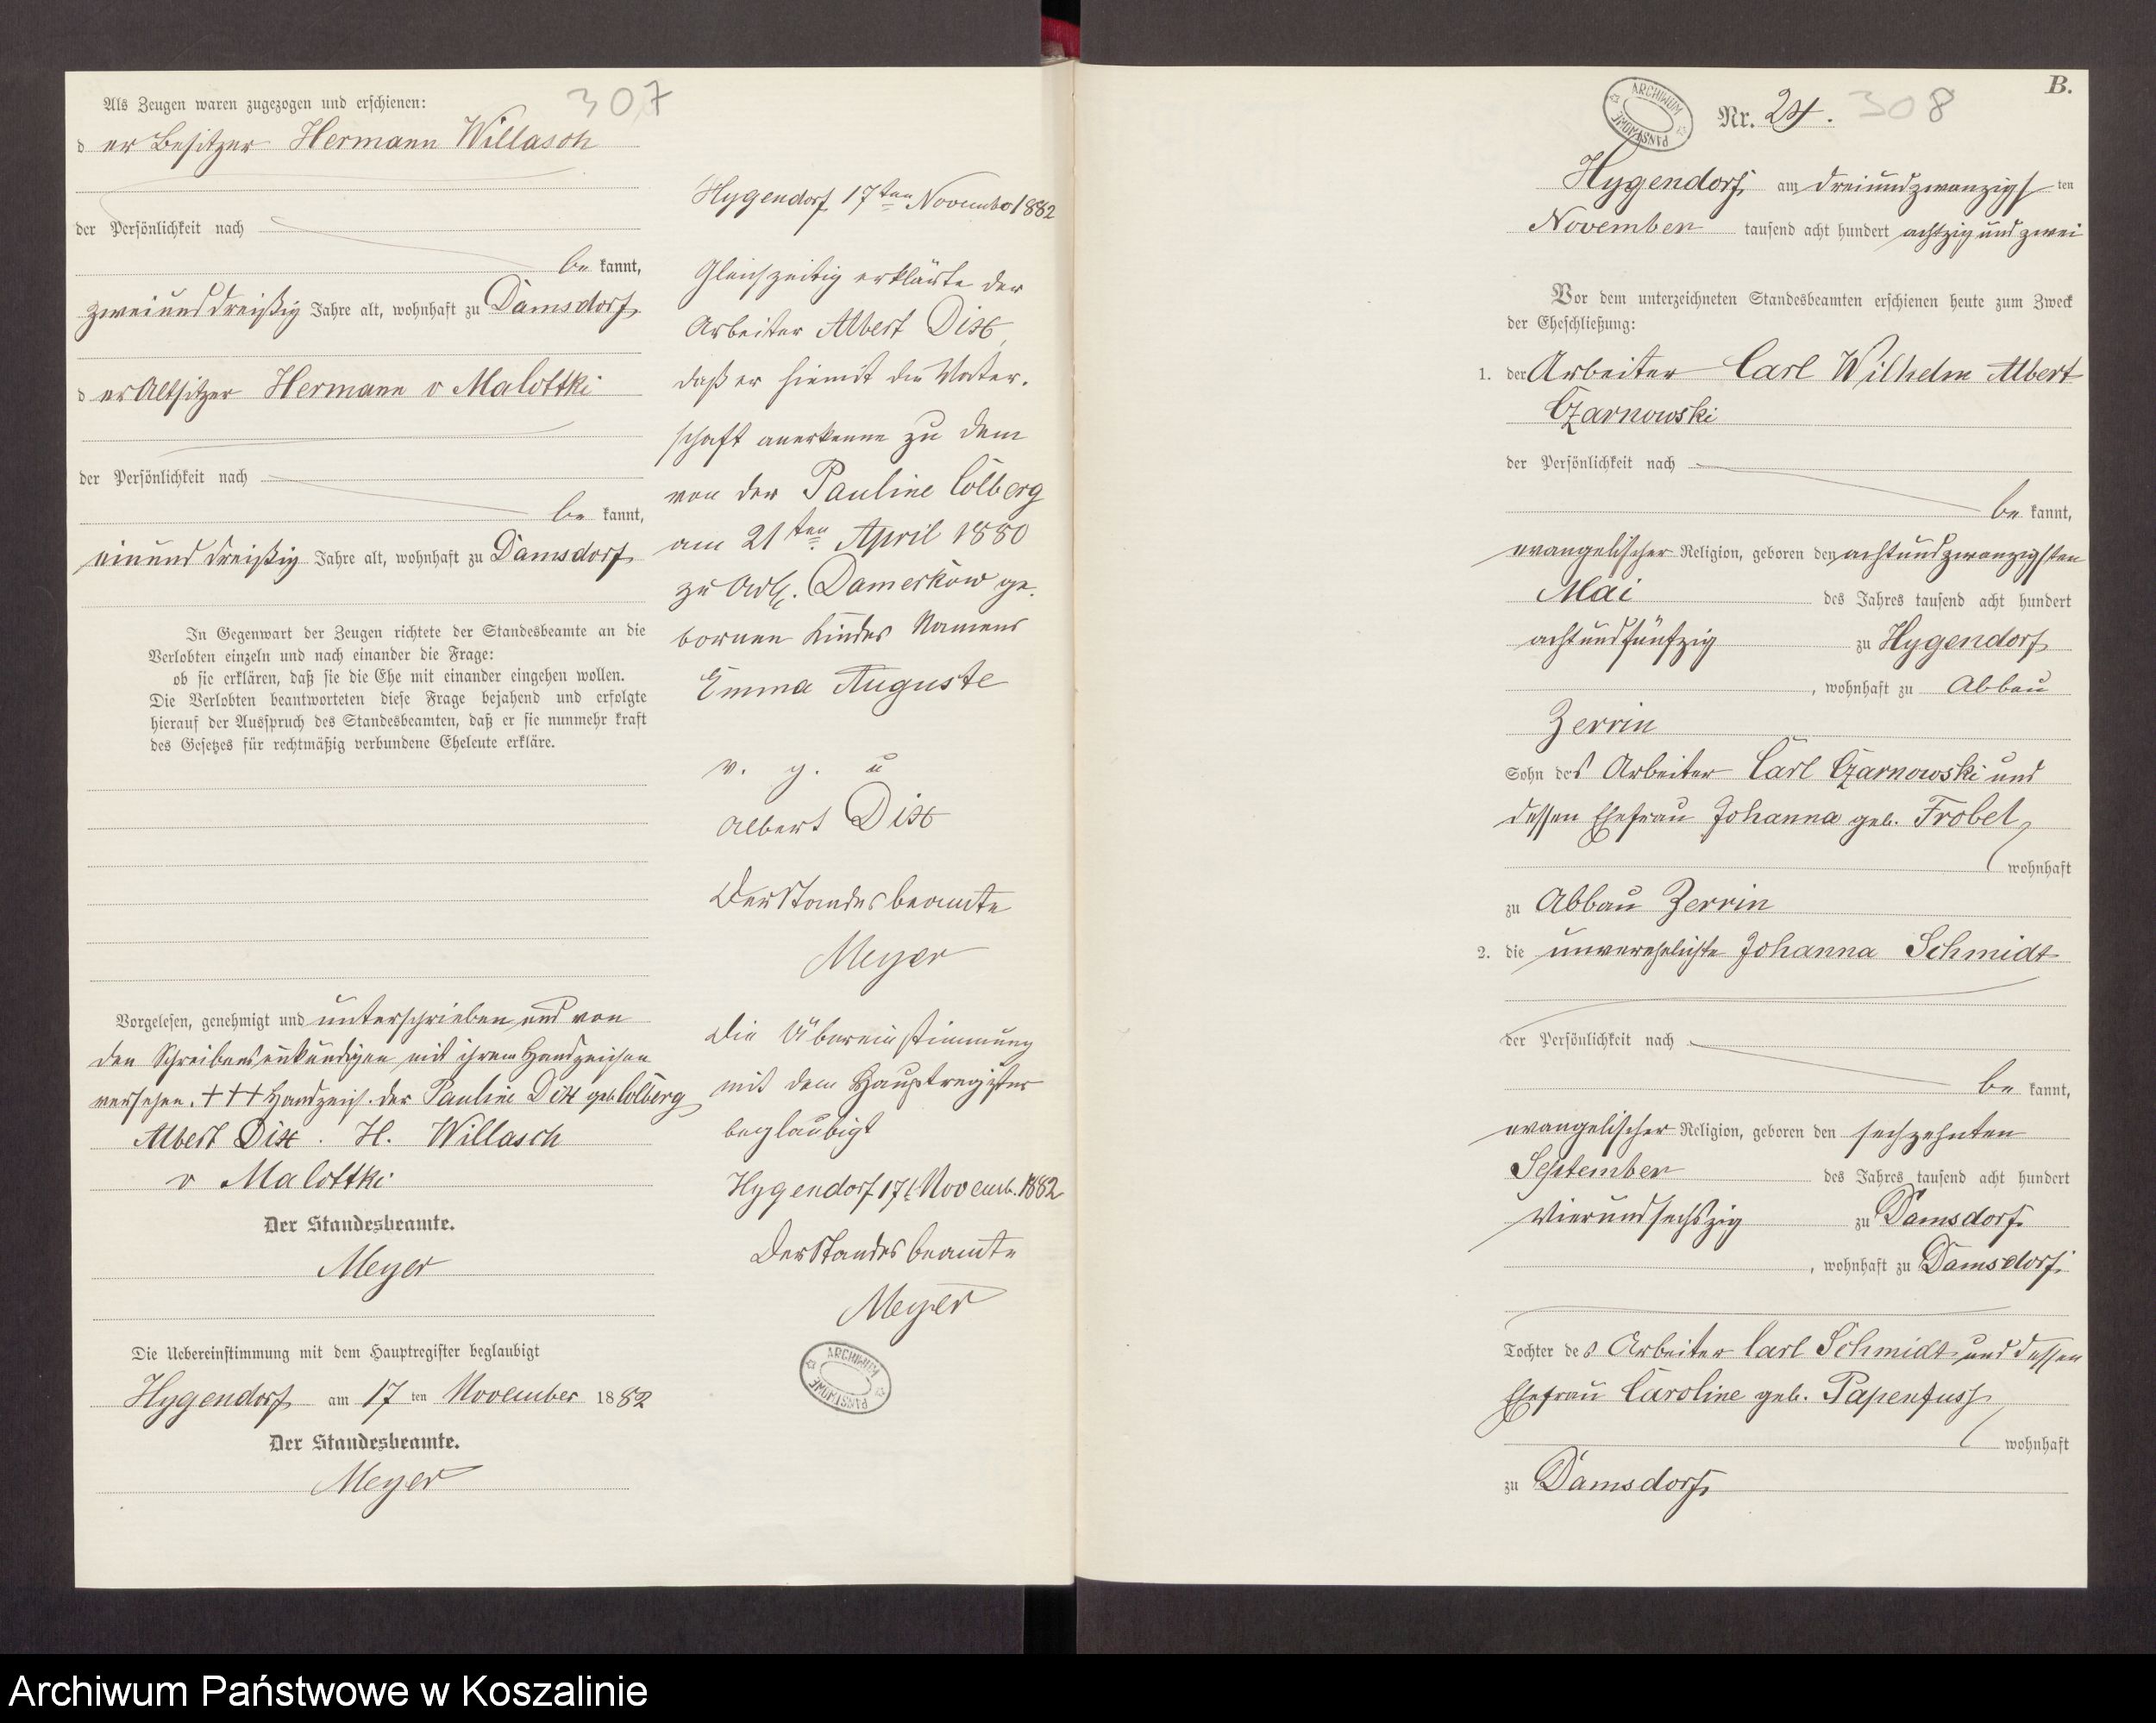 307
Als Zeugen waren zugezogen und erschienen:
d er Besitzer Hermann Willasch
der Persönlichkeit nach
be kannt,
zweiunddreißig Jahre alt, wohnhaft zu Damsdorf
d er Altsitzer Hermann v Malottki
der Persönlichkeit nach
be kannt,
einunddreißig Jahre alt, wohnhaft zu Damsdorf
In Gegenwart der Zeugen richtete der Standesbeamte an die
Verlobten einzeln und nach einander die Frage:
ob sie erklären, daß sie die Ehe mit einander eingehen wollen.
Die Verlobten beantworteten diese Frage bejahend und erfolgte
hierauf der Ausspruch des Standesbeamten, daß er sie nunmehr kraft
des Gesetzes für rechtmäßig verbundene Eheleute erkläre.
Vorgelesen, genehmigt und unterschrieben und von
den Schreibensunkundigen mit ihrem Handzeichen
versehen. +++ Handzeich. der Pauline Dix geb Colberg
Albert Dix. H. Willasch
v Malottki
Der Standesbeamte.
Meyer
Die Uebereinstimmung mit dem Hauptregister beglaubigt
Hygendorf am 17 ten November 1882
Der Standesbeamte.
Meyer
Hygendorf 17ten November 1882
Gleichzeitig erklärte der
Arbeiter Albert Dix,
daß er hiemit die Vater-
schaft anerkenne zu dem
von der Pauline Colberg
am 21ten April 1880
zu Adl. Damerkow ge-
bornen Kindes Namens
Emma Auguste
v. g. u
Albert Dix
Der Standesbeamte
Meyer
Die Übereinstimmung
mit dem Hauptregister
beglaubigt
Hygendorf 17t Novemb. 1882
Der Standesbeamte
Meyer
ARCHIWUM PAŃSTWOWE
B.
ARCHIWUM PAŃSTWOWE
Nr. 24. 308
Hygendorf, am dreiundzwanzigs ten
November tausend acht hundert achtzig und zwei
Vor dem unterzeichneten Standesbeamten erschienen heute zum Zweck
der Eheschließung:
1. der Arbeiter Carl Wilhelm Albert
Czarnowski
der Persönlichkeit nach
be kannt,
evangelischer Religion, geboren den achtundzwanzigsten
Mai des Jahres tausend acht hundert
achtundfünfzig zu Hygendorf
, wohnhaft zu Abbau
Zerrin
Sohn des Arbeiter Carl Czarnowski und
dessen Ehefrau Johanna geb. Frobel
wohnhaft
zu Abbau Zerrin
2. die unverehelichte Johanna Schmidt
der Persönlichkeit nach
be kannt,
evangelischer Religion, geboren den sechzehnten
September des Jahres tausend acht hundert
vierundsechszig zu Damsdorf
, wohnhaft zu Damsdorf
Tochter des Arbeiter Carl Schmidt und dessen
Ehefrau Caroline geb. Papenfuss
wohnhaft
zu Damsdorf
Archiwum Państwowe w Koszalinie